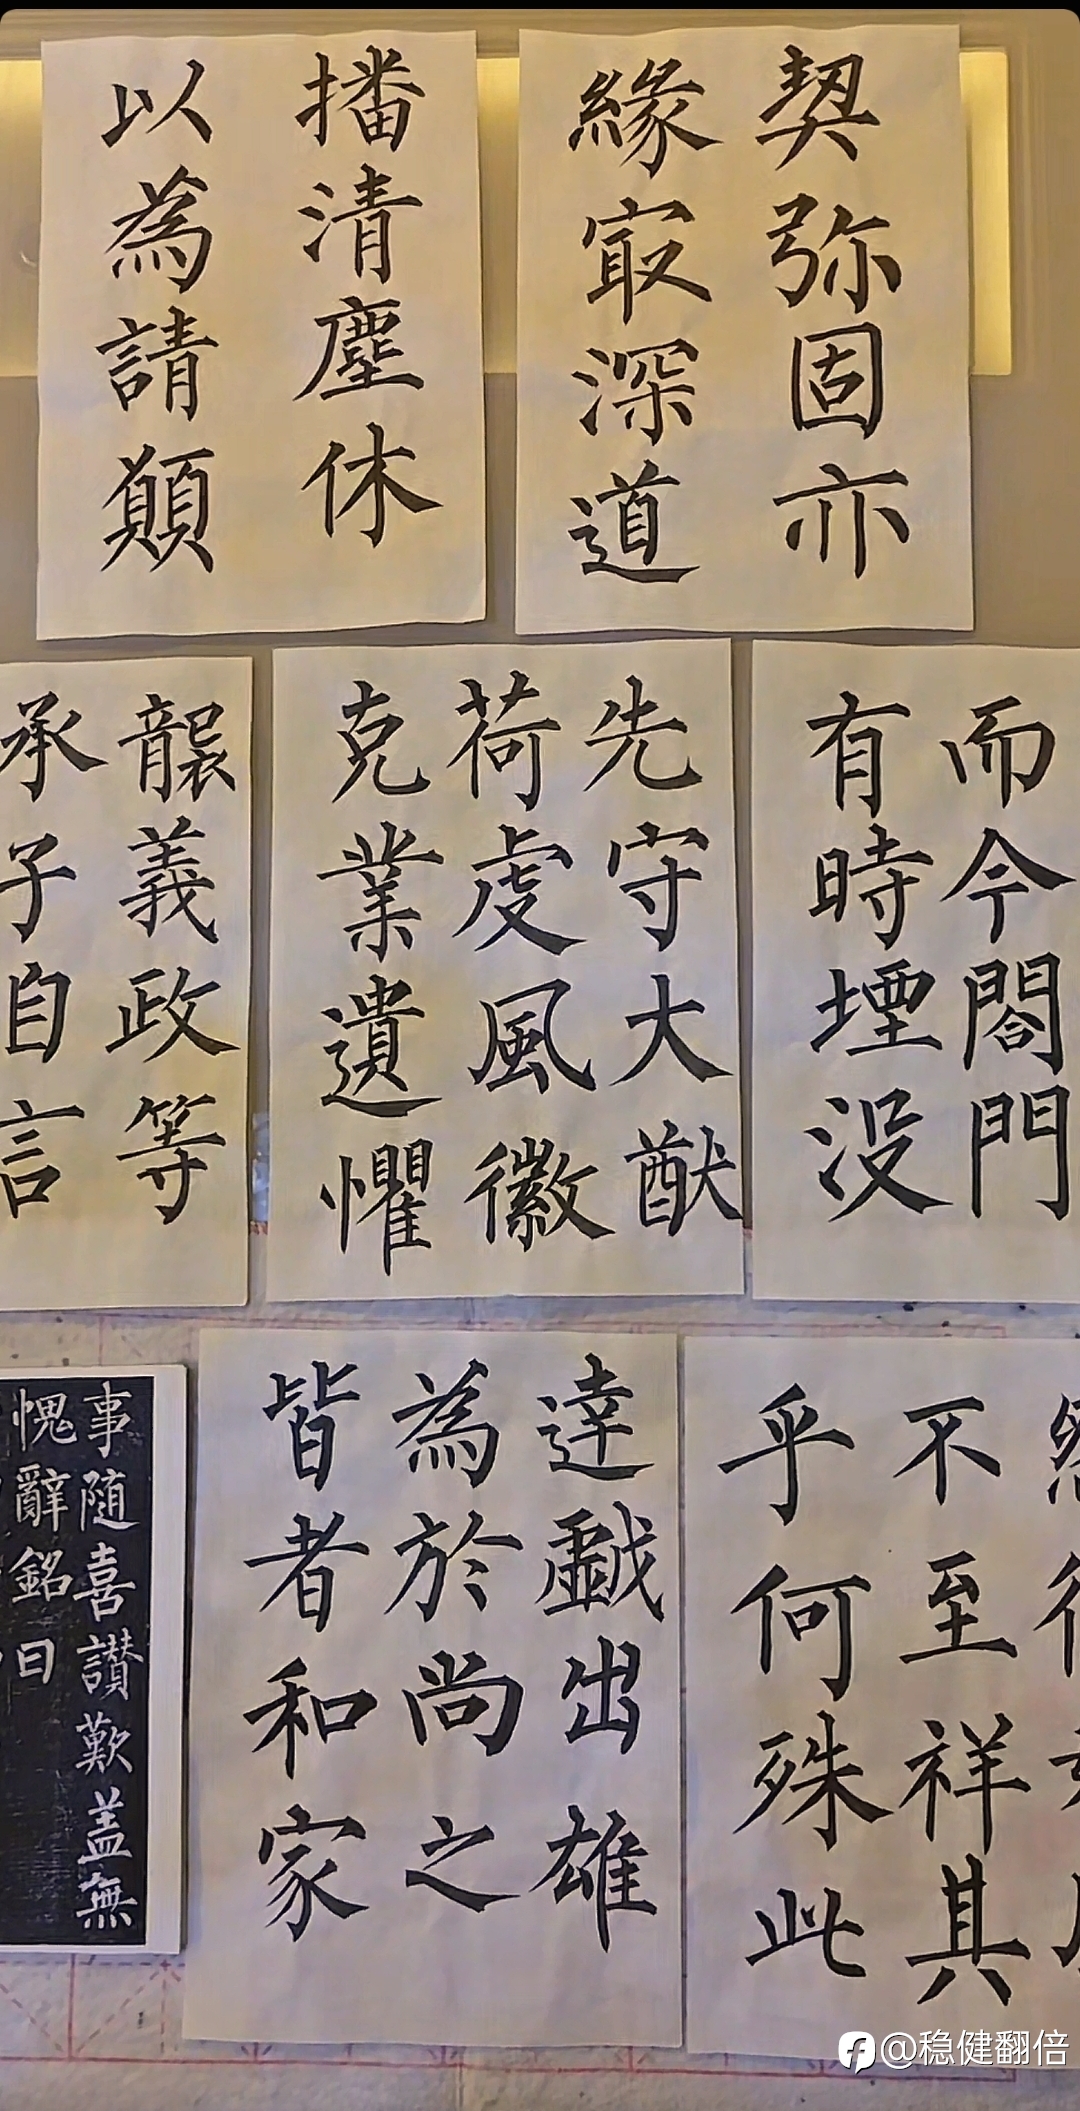 契弥固亦
緣寂深道
播清塵休
以為請顛
而今閤門
有時堙没
先守大猷
荷虔風徽
克業遺懼
襲義政等
承子自言
不至祥其
乎何殊此
達戲出雄
為於尚之
皆者和家
事随喜讃歎盖無
愧辭銘曰
@稳健翻倍